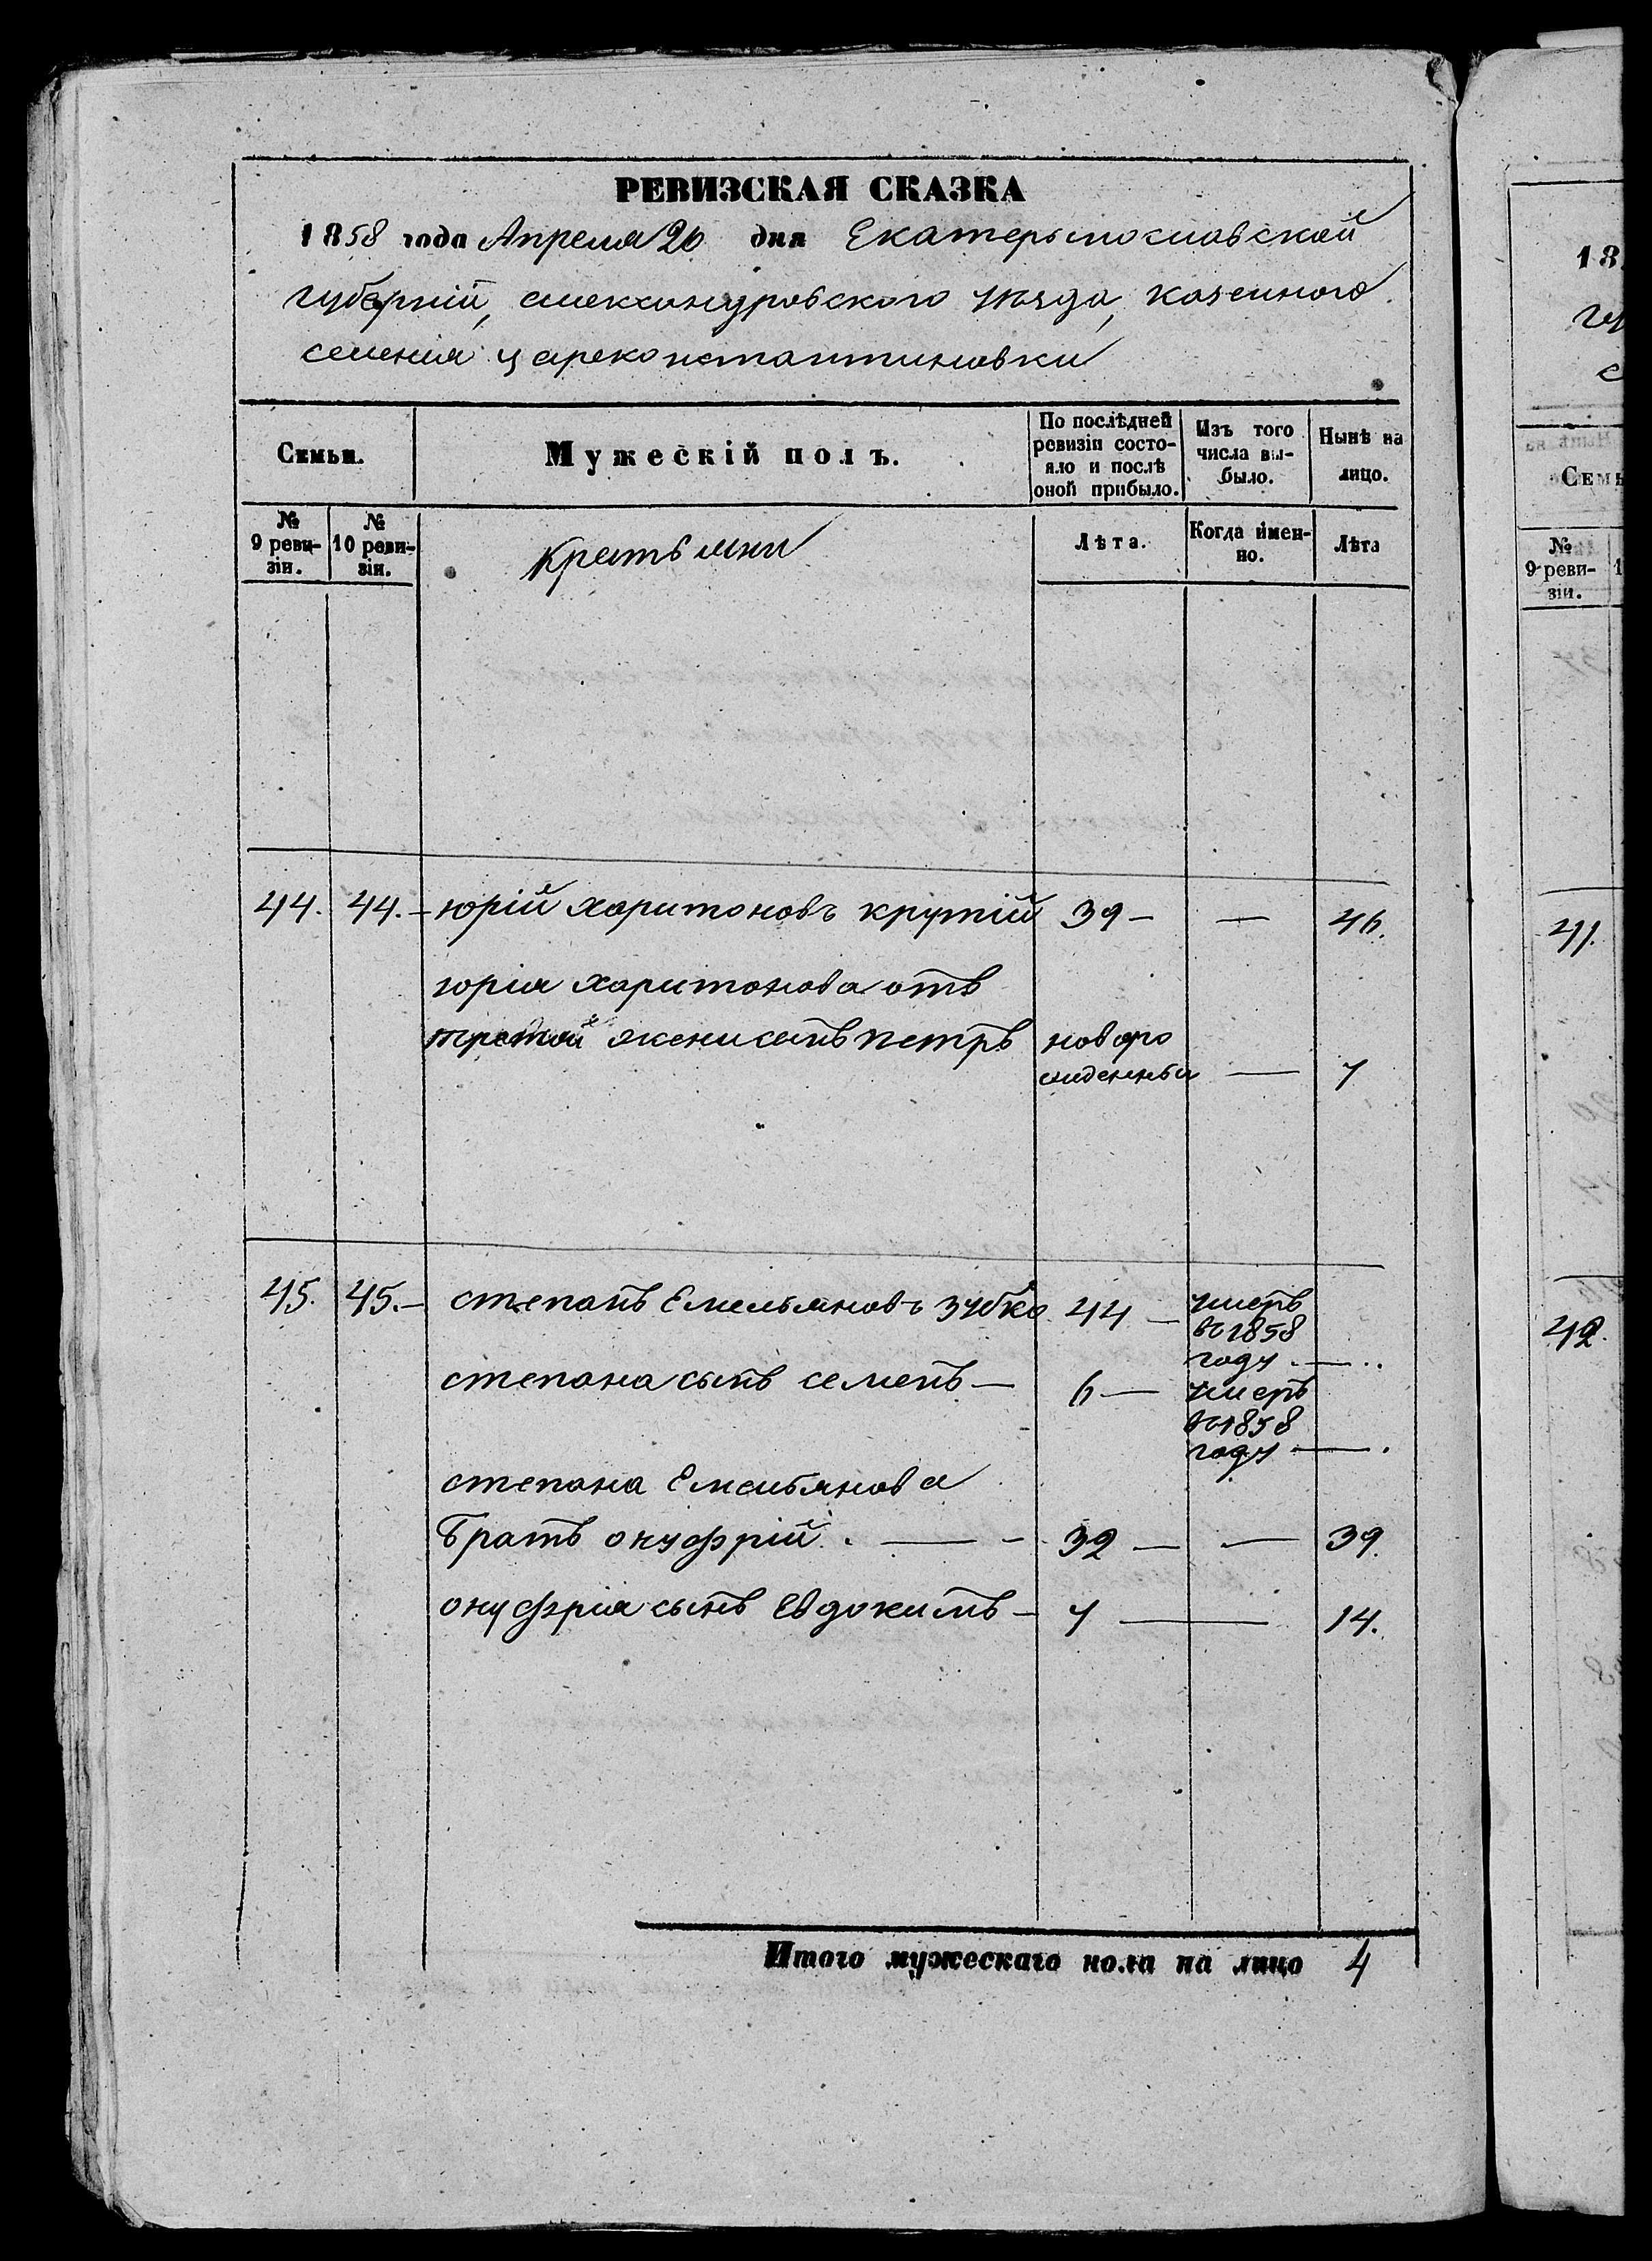 РЕВИЗСКАЯ СКАЗКА
1858 года Апреля 20 дня Екатериносливской
губерній, александровского уѣзда, казенного
селенія цареконстантиновки
Семьи.
Мужескій полъ.
По послѣдней ревизіи состояло и послѣ оной прибыло.
Изъ того числа выбыло.
Нынѣ на лицо.
№ 9 ревизіи.
№ 10 ревизіи.
Лѣта.
Когда именно.
Лѣта
44. 44. – юрій харитоновъ крутій 39 – — 46.
юрія харитонова отъ
третей жены сынъ петръ новоро
жденный — 7
45. 45. – степанъ Емельяновъ зубко 44 – умеръ
въ 1858
году . — ..
степана сынъ семенъ — 6 — умеръ
въ 1858
году — .
степана Емельянова
братъ онуфрій . — - 32 — — 39.
онуфрія сынъ Евдокимъ – 7 — 14.
Итого мужескаго пола на лицо 4
18
№ 9 ревизіи.
41.
42.